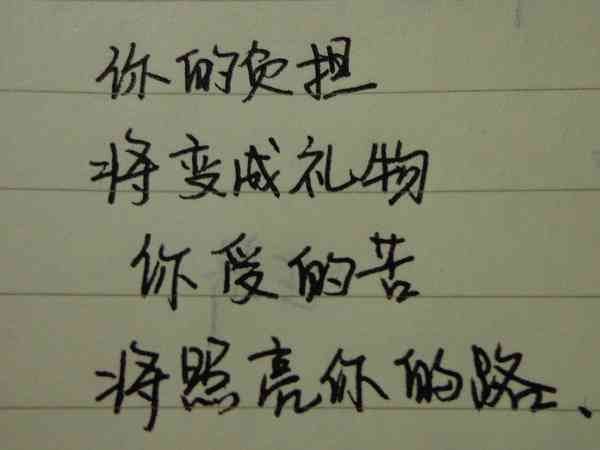 你的负担
将变成礼物
你受的苦
将照亮你的路、